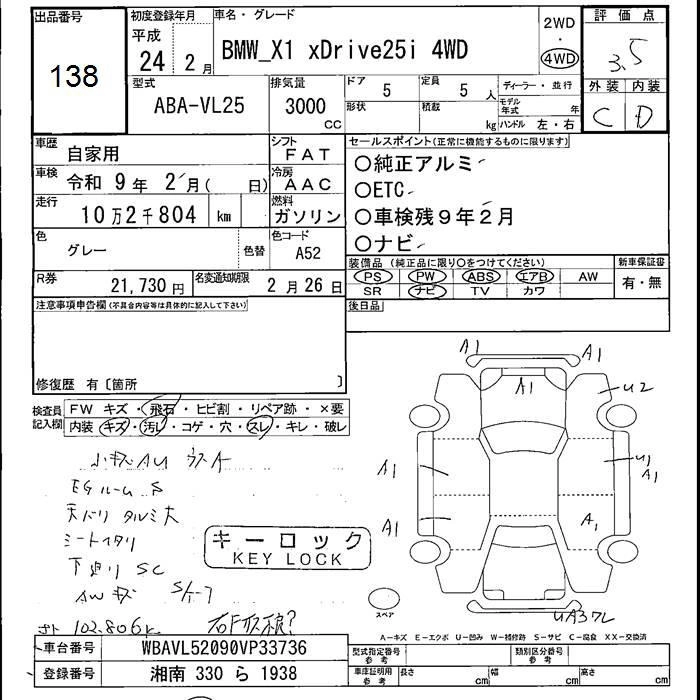 出品番号
138
初度登録年月
平成
24 2月
車名・グレード
BMW_X1 xDrive25i 4WD
2WD
・
4WD
評価点
3.5
外装 内装
C D
型式
ABA-VL25
排気量
3000
cc
ドア
5
定員
5 人
形状
積載
kg
ディーラー・並行
モデル年式 年
ハンドル 左・右
車歴
自家用
シフト
FAT
車検
令和 9年 2月( 日)
冷房
AAC
走行
10万2千804 km
燃料
ガソリン
色
グレー
色替
色コード
A52
R券
21,730円
名変通知期限
2月26日
セールスポイント(正常に機能するものに限ります)
○純正アルミ
○ETC
○車検残9年2月
○ナビ
装備品(純正品に限り○をつけてください)
PS PW ABS エアB AW
SR ナビ TV カワ
新車保証書
有・無
後日品
注意事項申告欄(不具合内容等は具体的に記入して下さい)
修復歴 有〔箇所 〕
検査員記入欄
FW キズ・飛石・ヒビ割・リペア跡・×要
内装 キズ・汚れ・コゲ・穴・スレ・キレ・破レ
小キズAU
EGルーム S
天バリ タルミ大
シートヘタリ
下廻り SC
AWキズ
102.806k
キーロック
KEY LOCK
A1 A1
A1
U2
A1
U1
A1
A1
A1
スペア
A-キズ E-エクボ U-凹み W-補修跡 S-サビ C-腐食 XX-交換済
車台番号 WBAVL52090VP33736
登録番号 湘南 330 ら 1938
型式指定番号 参考
類別区分番号 参考
車庫証明用 参考 長さ cm 幅 cm 高さ cm